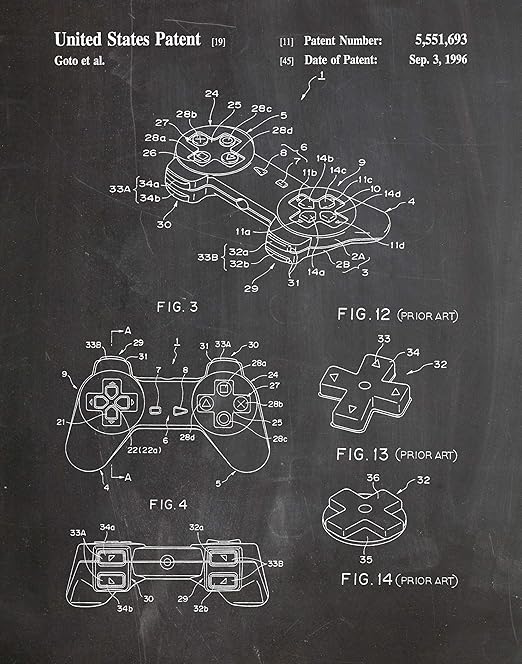 United States Patent [19]
[11] Patent Number: 5,551,693
Goto et al.
[45] Date of Patent: Sep. 3, 1996
1
24 25 28c 5
28b
27 28d
28a
6
26 8 7 14b 9
14c
11b 11c
10
14d
4
33A 34a
34b
30
11a 11d
33B 32a
32b
2A
2B 3
14a
29 31
FIG. 3
FIG. 12 (PRIOR ART)
A
33B 29 31 33A 30
31 1 28a
9 7 8 24
27
28b
21 25
6
22(22a) 28d 28c
A
4 5
33
34
32
FIG. 13 (PRIOR ART)
FIG. 4
36 32
35
34a 32a
33A 33B
34b 30 29 32b
FIG. 14 (PRIOR ART)